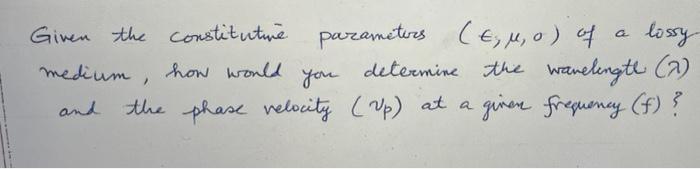 Given the constitutive parameters (ϵ, μ, σ) of a lossy
medium, how would you determine the wavelength (λ)
and the phase velocity (vp) at a given frequency (f) ?